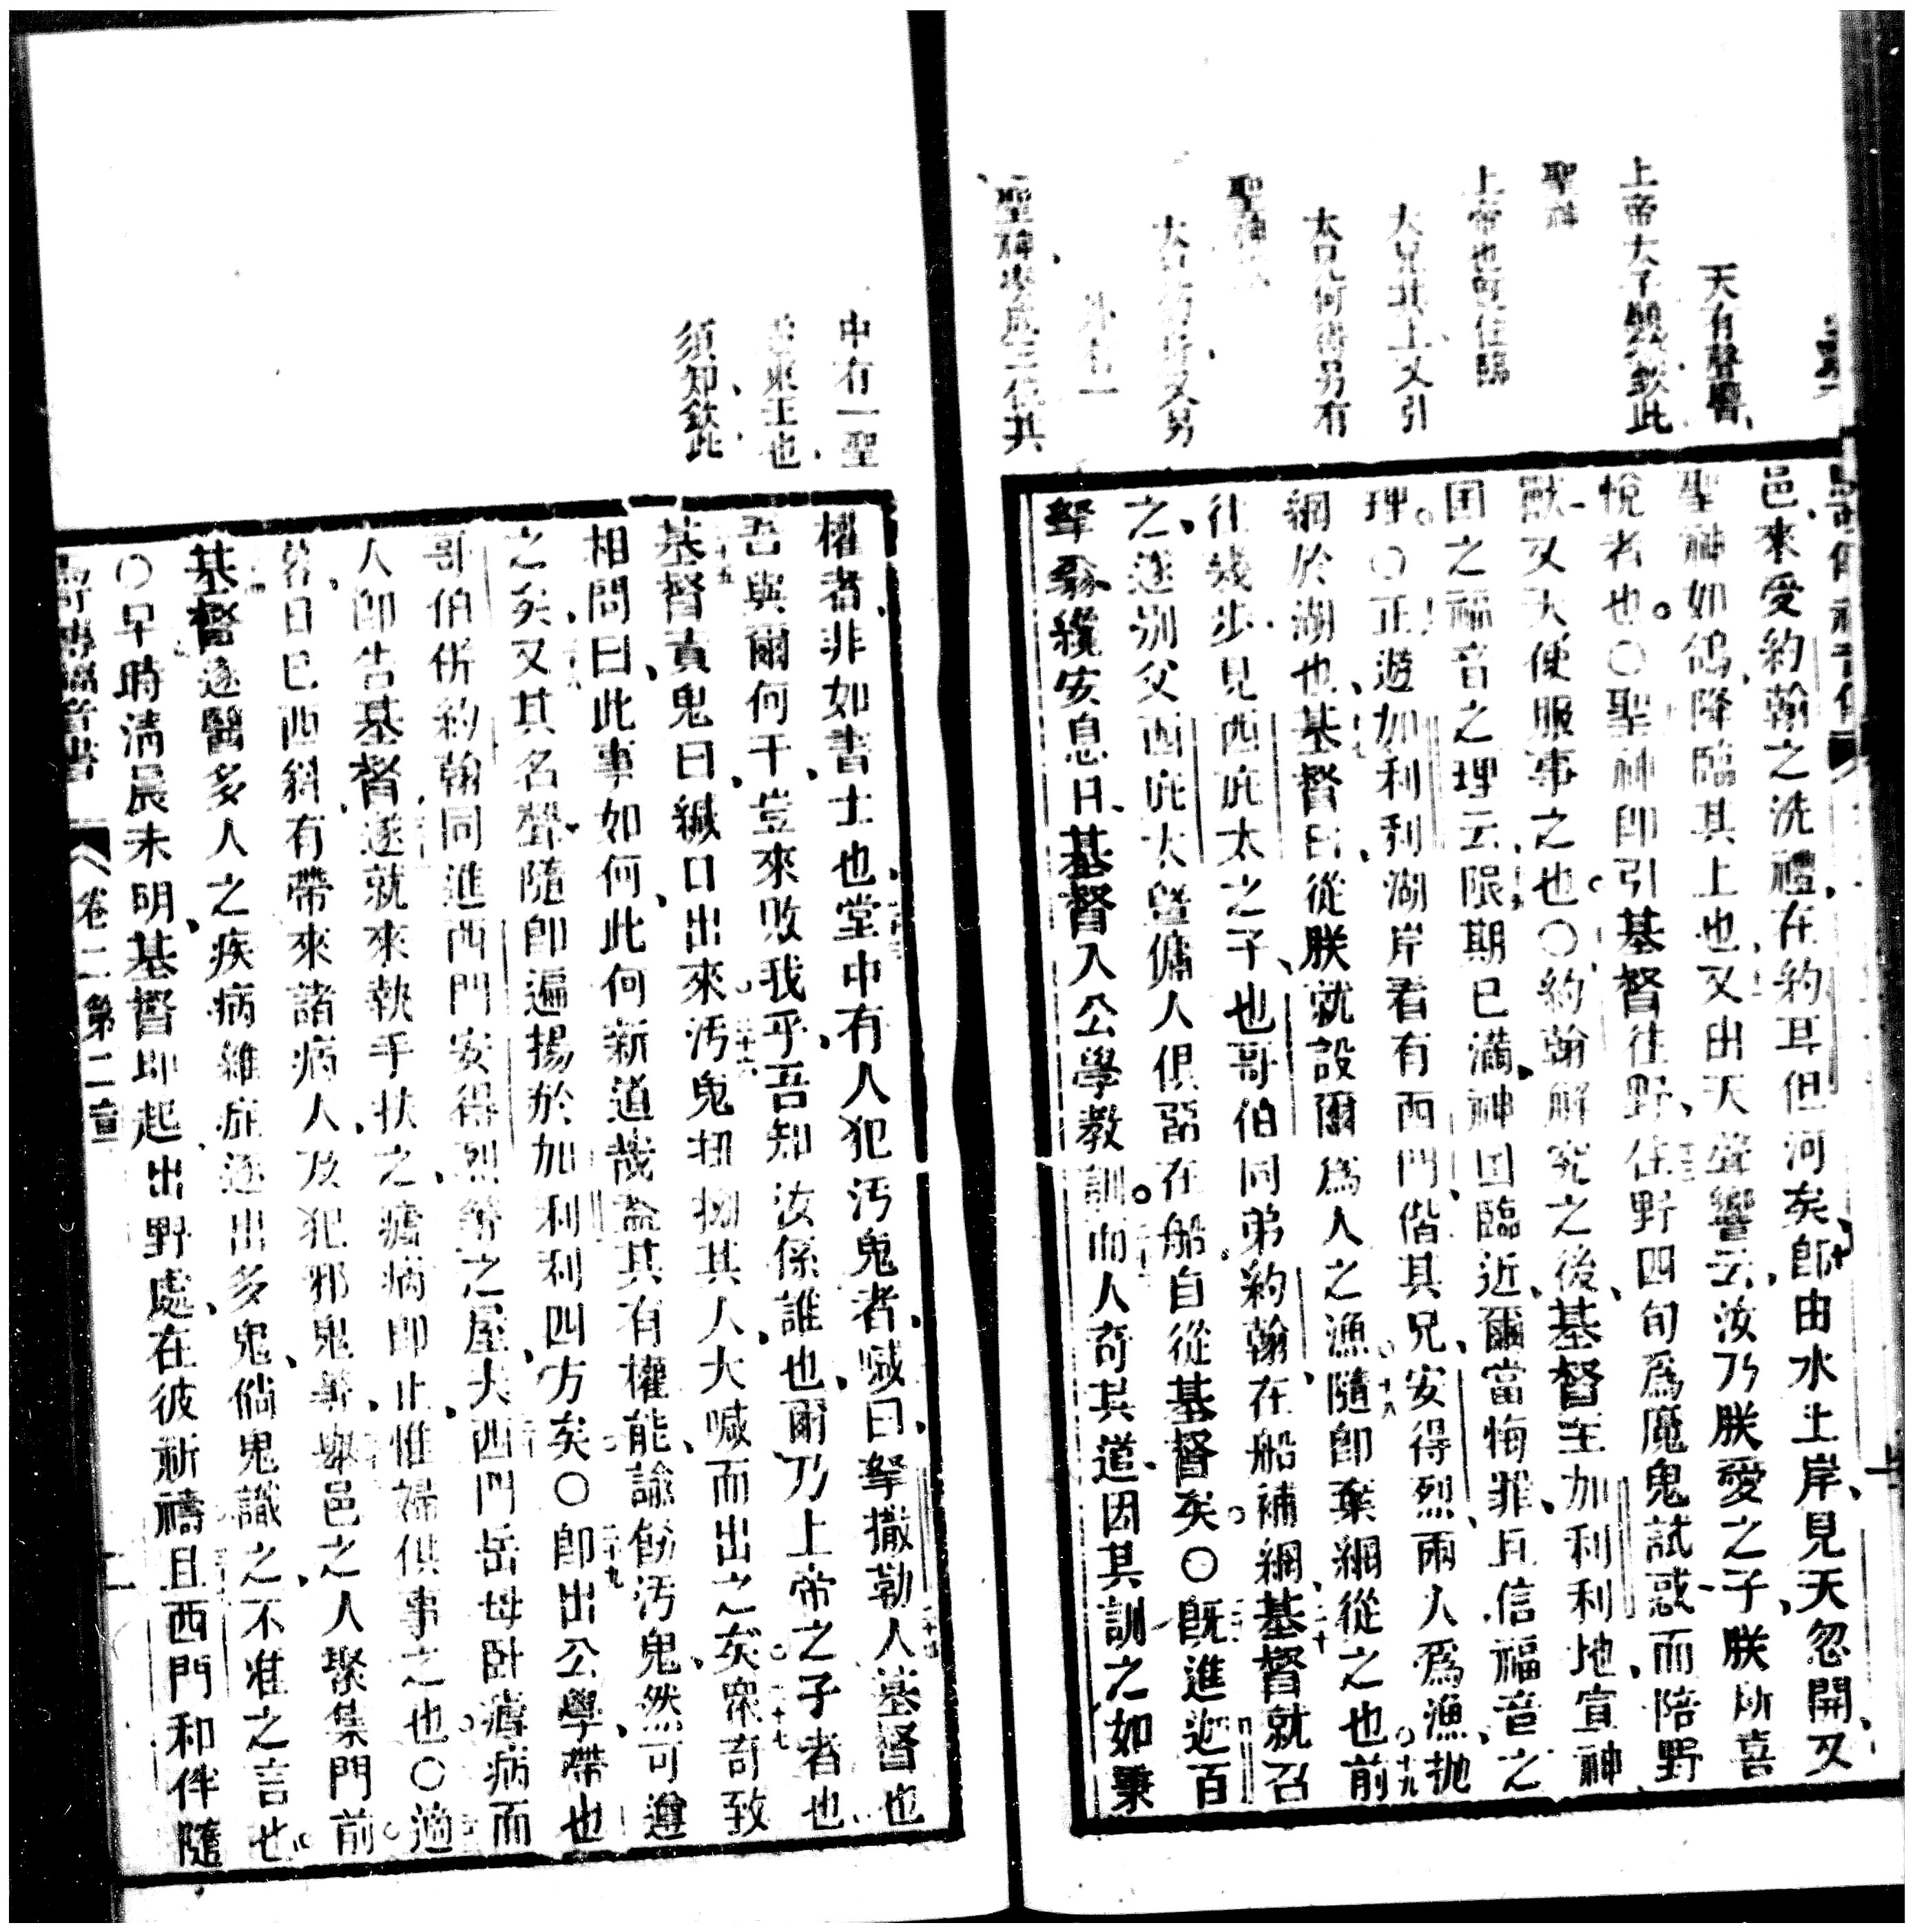 天有聲響
上帝太子顯然欽此
聖神
上帝也旣住臨
太兄其上又引
太兄何得另有
聖神
聖神卒成三位共
邑來受約翰之洗禮在約耳但河矣卽由水上岸見天忽開又
聖神如鴿降臨其上也又由天聲響云汝乃朕愛之子朕所喜
悅者也○聖神卽引基督往野住野四旬爲魔鬼試惑而陪野
獸又天使服事之也○約翰解究之後基督至加利利地宣神
国之福音之理云限期已滿神国臨近爾當悔罪且信福音之
理○正遊加利利湖岸看有西門偕其兄安得烈兩人爲漁抛
網於湖也基督曰從朕就設爾爲人之漁隨卽棄網從之也前
往幾步見西庇太之子也哥伯同弟約翰在船補網基督就召
之遂別父西庇太曁傭人俱留在船自從基督矣○旣進迦百
拏纔安息日基督入公學教訓而人奇其道因其訓之如秉
中有一聖
東王也
須知欽此
權者非如書士也堂中有人犯汚鬼者喊曰拏撒勒人基督也
吾與爾何干豈來敗我乎吾知汝係誰也爾乃上帝之子者也
基督責鬼曰緘口出來汚鬼扭拗其人大喊而出之矣衆奇致
相問曰此事如何此何新道哉葢其有權能諭飭汚鬼然可遵
之矣又其名聲隨卽遍揚於加利利四方矣○卽出公學帶也
哥伯併約翰同進西門安得烈等之屋夫西門岳母卧瘧病而
人卽告基督遂就來執手扶之瘧病卽止惟婦供事之也○適
暮日已西斜有帶來諸病人及犯邪鬼等舉邑之人聚集門前
基督遂醫多人之疾病雜症逐出多鬼倘鬼識之不准之言也
○早時淸晨未明基督卽起出野處在彼祈禱且西門和伴隨
卷二第二章